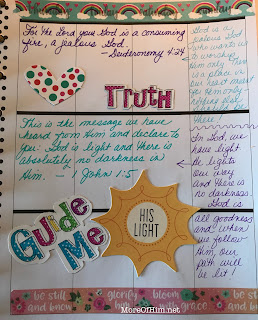 For the Lord your God is a consuming
fire, a jealous God.
—Deuteronomy 4:24
TRUTH
This is the message we have
heard from Him and declare to
you: God is light and there is
absolutely no darkness in
Him. - 1 John 1:5
God is a
jealous God
who wants us
to worship
Him only. There
is a place in
our heart meant
for Him only.
be
His only!
In God, we
have light
He lights
our way
and there is
no darkness
God is
all goodness
and when
we follow
Him, our
path will
be lit!
Guide
Me
HIS
LIGHT
be still
and know
glorify
Him
bloom
with grace
be still
and know
MoreOfHim.net